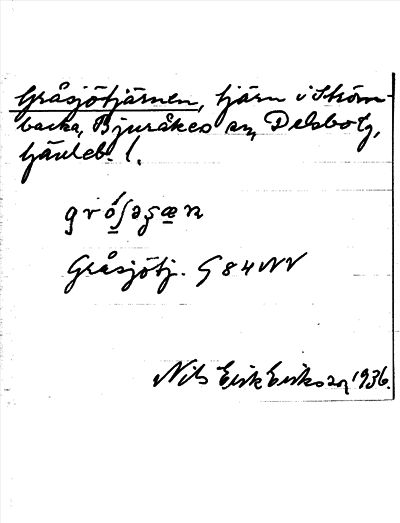 Gråsjötjärnen, tjärn i Ström-
backa, Bjuråkers sn, Delsbo tg,
Gävleb. l.
gró̲ʃəʂæ̲n
Gråsjötj. G 84 NV
Nils Erik Eriksson 1936.